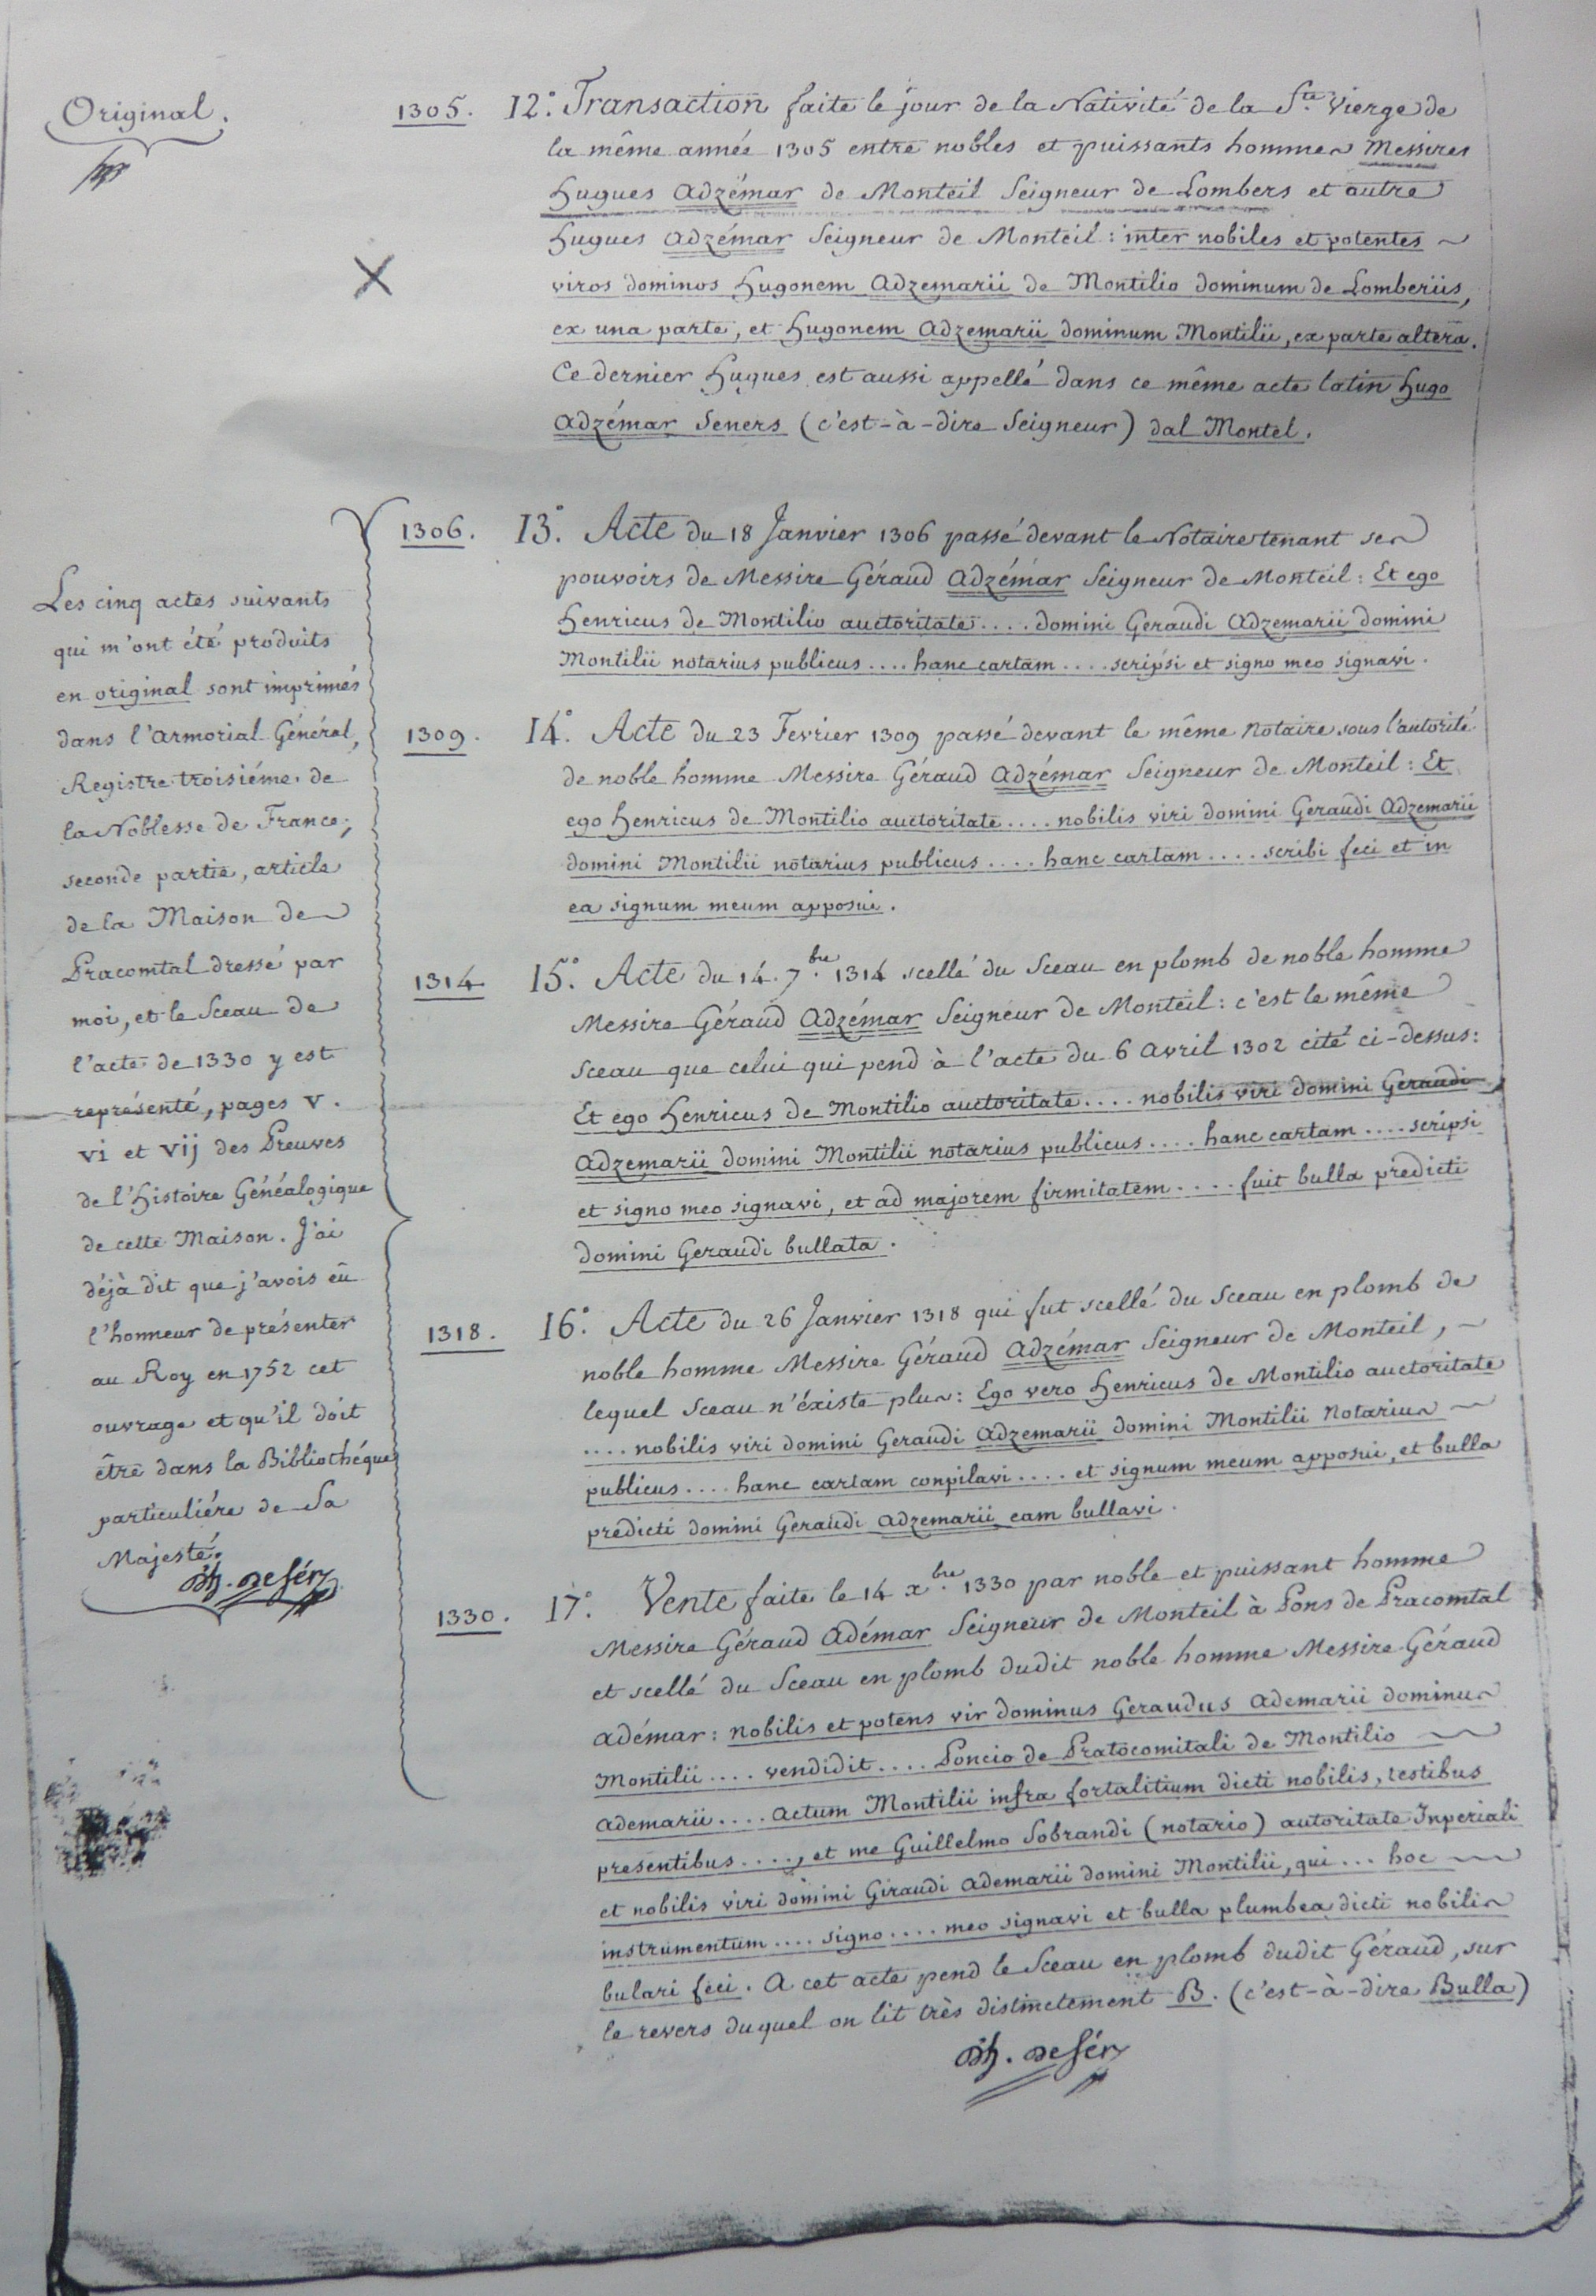 Original.
1305. 12.° Transaction faite le jour de la Nativité de la S.te Vierge de
la même année 1305 entre nobles et puissants hommes Messires
Hugues Adzémar de Monteil Seigneur de Lombers et autre
Hugues Adzémar Seigneur de Monteil : inter nobiles et potentes
viros dominos Hugonem Adzemarii de Montilio dominum de Lomberiis,
ex una parte, et Hugonem Adzemarii dominum Montilii, ex parte altera.
Ce dernier Hugues est aussi appellé dans ce même acte latin Hugo
Adzémar Seners (c'est-à-dire Seigneur) dal Montel.
Les cinq actes suivants
qui m'ont été produits
en original sont imprimés
dans l'Armorial Général,
Registre troisiéme de
la Noblesse de France,
seconde partie, article
de la Maison de
Pracomtal dressé par
moi, et le Sceau de
l'acte de 1330 y est
représenté, pages V.
VI et VIJ des Preuves
de l'Histoire Généalogique
de cette Maison. J'ai
déjà dit que j'avois eû
l'honneur de présenter
au Roy en 1752 cet
ouvrage et qu'il doit
être dans la Bibliothéque
particuliére de Sa
Majesté.
1306. 13.° Acte du 18 Janvier 1306 passé devant le Notaire tenant ses
pouvoirs de Messire Géraud Adzémar Seigneur de Monteil : Et ego
Henricus de Montilio auctoritate .... domini Geraudi Adzemarii domini
Montilii notarius publicus .... hanc cartam .... scripsi et signo meo signavi.
1309. 14.° Acte du 23 Fevrier 1309 passé devant le même Notaire sous l'autorité
de noble homme Messire Géraud Adzémar Seigneur de Monteil : Et
ego Henricus de Montilio auctoritate .... nobilis viri domini Geraudi Adzemarii
domini Montilii notarius publicus .... hanc cartam .... scribi feci et in
ea signum meum apposui.
1314 15.° Acte du 14. 7.bre 1314 scellé du Sceau en plomb de noble homme
Messire Géraud Adzémar Seigneur de Monteil : c'est le même
Sceau que celui qui pend à l'acte du 6 Avril 1302 cité ci-dessus :
Et ego Henricus de Montilio auctoritate .... nobilis viri domini Geraudi
Adzemarii domini Montilii notarius publicus .... hanc cartam .... scripsi
et signo meo signavi, et ad majorem firmitatem .... fuit bulla predicti
domini Geraudi bullata.
1318. 16.° Acte du 26 Janvier 1318 qui fut scellé du Sceau en plomb de
noble homme Messire Géraud Adzémar Seigneur de Monteil,
lequel Sceau n'éxiste plus : Ego vero Henricus de Montilio auctoritate
.... nobilis viri domini Geraudi Adzemarii domini Montilii Notarius
publicus .... hanc cartam conpilavi .... et signum meum apposui, et bulla
predicti domini Geraudi Adzemarii eam bullavi.
1330. 17.° Vente faite le 14 x.bre 1330 par noble et puissant homme
Messire Géraud Adémar Seigneur de Monteil à Pons de Pracomtal
et scellé du Sceau en plomb dudit noble homme Messire Géraud
Adémar : nobilis et potens vir dominus Geraudus Ademarii dominus
Montilii .... vendidit .... Poncio de Pratocomitali de Montilio
Ademarii .... Actum Montilii infra fortalitium dicti nobilis, testibus
presentibus ...., et me Guillelmo Sobrandi (notario) autoritate Inperiali
et nobilis viri domini Giraudi Ademarii domini Montilii, qui ... hoc
instrumentum .... signo .... meo signavi et bulla plumbea dicti nobilis
bulari feci. A cet acte pend le Sceau en plomb dudit Géraud, sur
le revers duquel on lit très distinctement B. (c'est-à-dire Bulla)